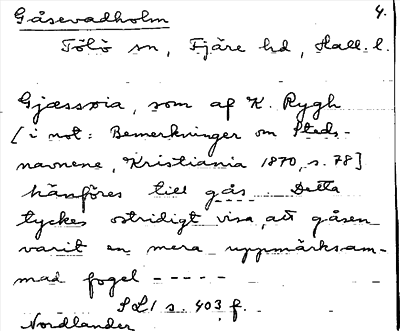 Gåsevadholm 4.
Tölö sn, Fjäre hd, Hall. l.
Gjæssøia, som af K. Rygh
[i not: Bemerkninger om Steds-
navnene, Kristiania 1870, s. 78]
hänföres till gås. Detta
tyckes ostridigt visa, att gåsen
varit en mera uppmärksam-
mad fogel - - - - -
SL1 s. 403 f.
Nordlander